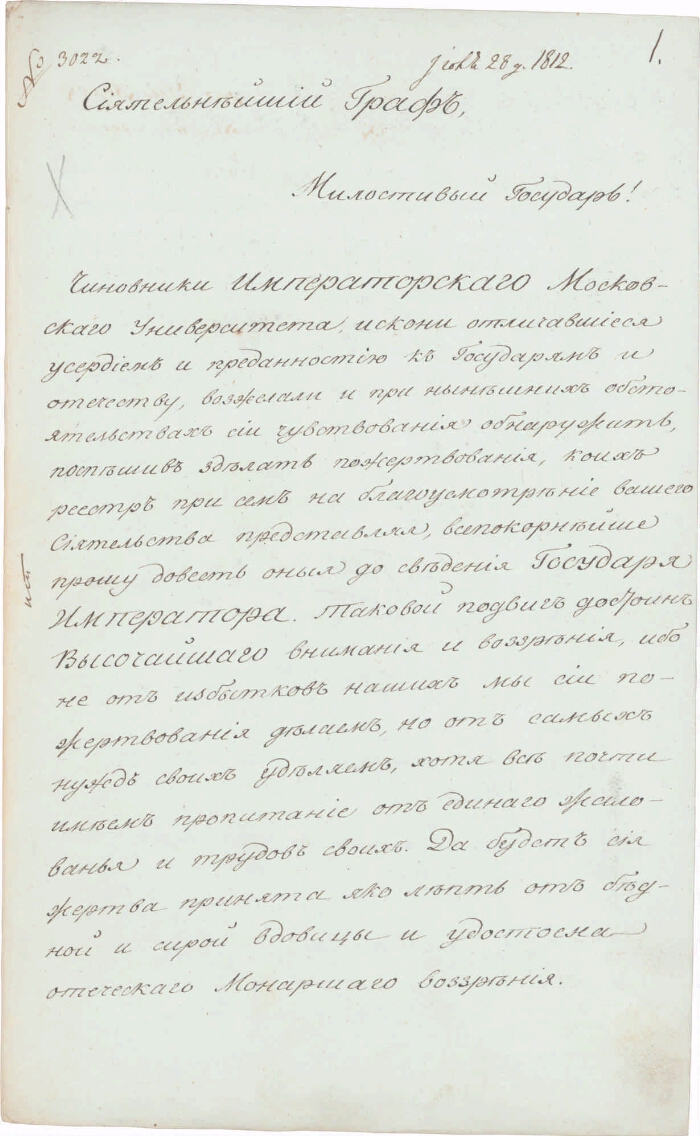 № 3022.
Іюля 28 д. 1812.
1.
Сіятельнѣйшій Графъ,
Милостивый Государь!
Чиновники Императорскаго Москов-
скаго Университета, искони отличавшіеся
усердіемъ и преданностію къ Государямъ и
отечеству, возжелали и при нынѣшнихъ обсто-
ятельствахъ сіи чувствованія обнаружить,
поспѣшивъ здѣлать пожертвованія, коихъ
реестръ при семъ на благоусмотрѣніе вашего
Сіятельства представляя, всепокорнѣйше
прошу довесть оныя до свѣденія Государя
Императора. Таковой подвигъ достоинъ
Высочайшаго вниманія и воззрѣнія, ибо
не отъ избытковъ нашихъ мы сіи по-
жертвованія дѣлаемъ, но отъ самыхъ
нуждъ своихъ удѣляемъ, хотя всѣ почти
имѣемъ пропитаніе отъ единаго жало-
ванья и трудовъ своихъ. Да будетъ сія
жертва принята яко лѣптъ отъ бѣд-
ной и сирой вдовицы и удостоена
отеческаго Монаршаго воззрѣнія.